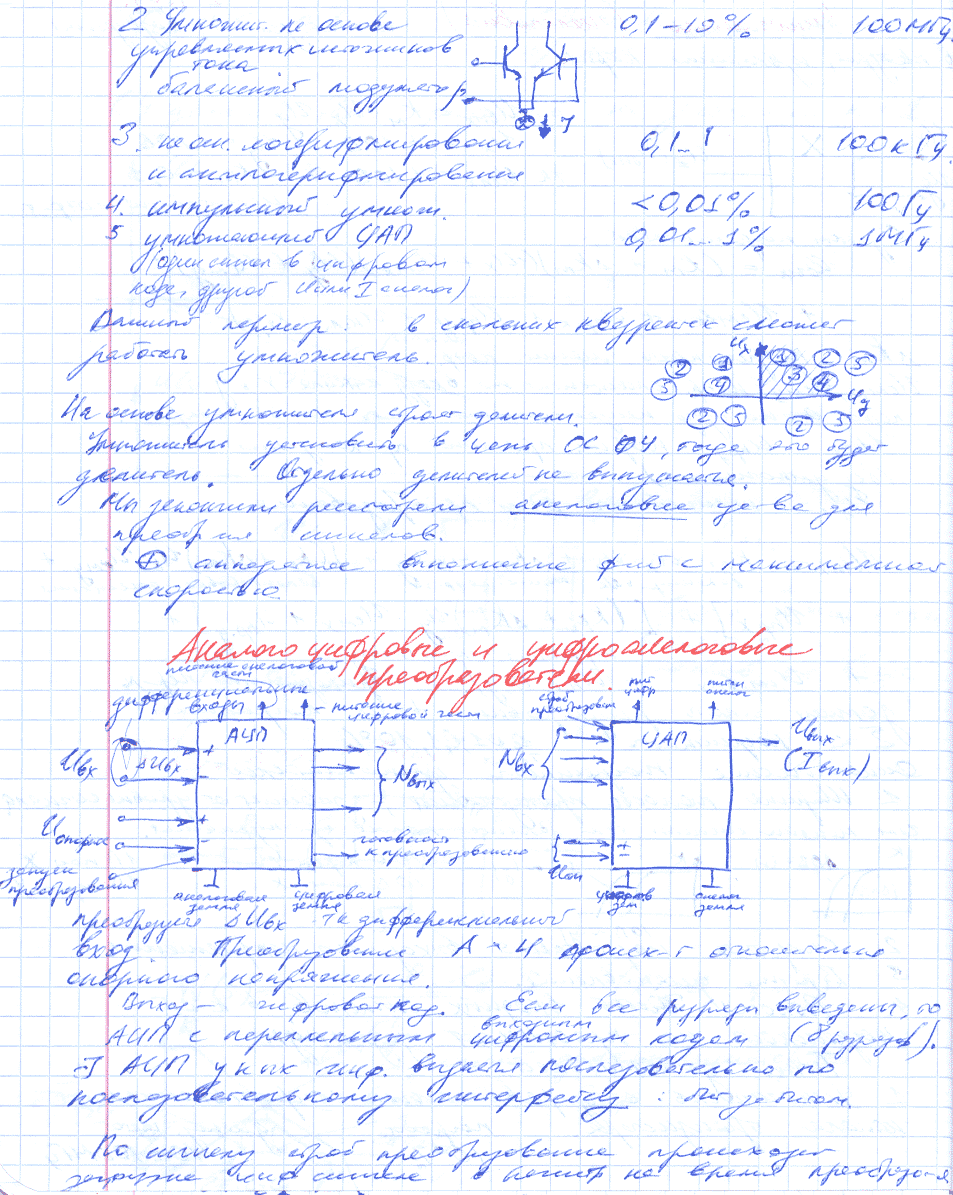 2 Умножит. на основе 0,1 – 10% 100 МГц.
управляемых источников
тока
балансный модулятор
J
3. на осн. логарифмирования 0,1...1 100 кГц.
и антилогарифмирования
4. импульсный умнож. <0,01% 100 Гц
5 умножающий ЦАП 0,01...1% 1 МГц
(один сигнал в цифровом
коде, другой U или I аналог)
Важный параметр: в скольких квадрантах сможет
работать умножитель.
Ux
2 1 1 2 5
3 4 3 4 Uy
2 5 2 5
На основе умножителя строят делители.
Умножитель установить в цепь ОС ОУ, тогда это будет
делитель. Отдельно делителей не выпускается.
Мы закончили рассмотрели аналоговые уст-ва для
преобр-ия сигналов.
+ аппаратное выполнение ф-ий с максимальной
скоростью
Аналого цифровые и цифроаналоговые
преобразователи.
питание аналоговой
части
дифференциальные
входы
– питание
цифровой части
АЦП
Uвх
ΔUвх
+
–
Nвых
Uопорн
+
–
готовность
к преобразованию
запуск
преобразования
аналоговая
земля
цифровая
земля
строб
преобразован
пит
цифр
питан
аналог
ЦАП
Nвх
Uвых
(Iвых)
+
–
Uоп
цифров
зем
аналог
земля
преобразует ΔUвх т.к дифференциальный
вход. Преобразование А → Ц происх-т относительно
опорного напряжения.
Выход – цифровой код. Если все разряды выведены, то
АЦП с параллельным выходным цифровым кодом (8 разрядов).
АЦП у них инф. выдается последовательно по
последовательному интерфейсу: бит за битом.
По сигналу строб преобразование происходит
загрузка циф сигнала в регистр на время преобразо-я